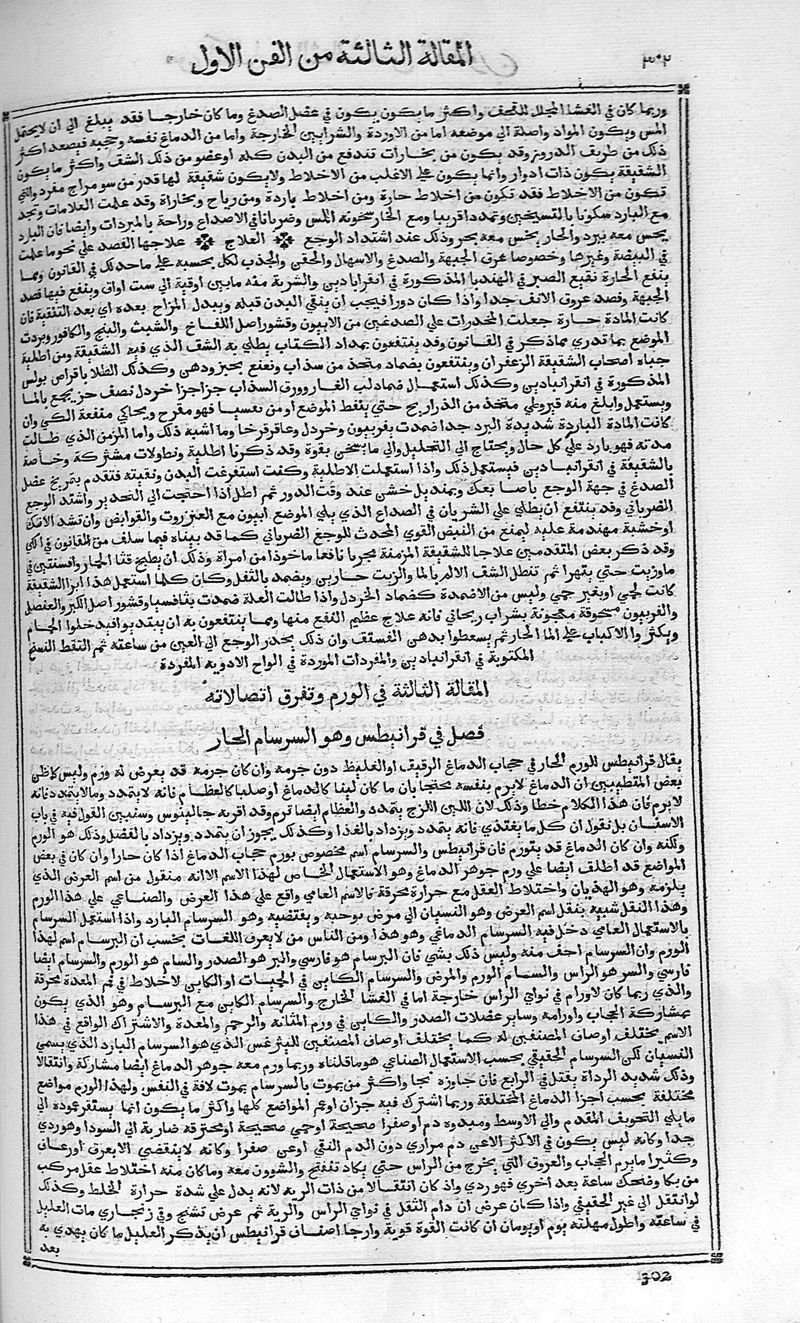 ٣٠٢ المقالة الثالثة من الفن الاول
وربما كان في الغشا المجلل للقحف واكثر ما يكون يكون في عضل الصدغ وما كان خارجا فقد يبلغ الي ان لا يحتمل
المس ويكون المواد واصلة الي موضعه اما من الاوردة والشرايين الخارجة واما من الدماغ نفسه وحجبه فيصعد اكثر
ذلك من طريف الدروز وقد يكون من بخارات تندفع من البدن كله او عضو من ذلك الشف واكثر ما يكون
الشقيقة يكون ذات ادوار وانما يكون علي الاغلب من الاخلاط ولا يكون شقيقة لها قدر من سو مزاج مفرد والتي
تكون من الاخلاط فقد تكون من اخلاط حارة ومن اخلاط باردة ومن رياح وبخاراة وقد علمت العلامات وتجد
مع البارد سكونا بالتسخين وتمددا قريبا ومع الحار سخونة الملس وضربانا في الاصداغ وراحة بالمبردات وايضا فان البارد
يحس معه ببرد والحار يحس معه بحر وذلك عند اشتداد الوجع العلاج علاجها الفصد علي نحو ما علمت
في البيضة وغيرها وخصوصا عرق الجبهة والصدغ والاسهال والحقن والجذب لكل بحسبه علي ما حد لك في القانون ومما
ينفع الحارة نقيع الصبر في الهندبا المذكورة في انقرابادين والشربة منه ما بين اوقية الي ست اواق وينفع فيها فصد
الجبهة وفصد عروق الانف جدا واذا كان دورا فيجب ان ينقي البدن قبله ويبدل المزاج بعده اي بعد التنقية فان
كانت المادة حارة جعلت المخدرات علي الصدغين من الافيون وقشور اصل اللفاح والشبث والبنج والكافور وبردت
الموضع بما تدري مما ذكر في القانون وقد ينتفعون بمداد الكتاب يطلي به الشف الذي فيه الشقيقة ومن اطلية
جباه اصحاب الشقيقة الزعفران وينتفعون بضماد متخذ من سذاب ونعنع بخبز ودهن وكذلك الطلا باقراص بولس
المذكورة في انقرابادين وكذلك استعمال ضماد لب الغار وورق السذاب جزا جزا خردل نصف جز يجمع بالما
ويستعمل وابلغ منه قيروطي متخذ من الذراريح حتي ينفط الموضع او من تفسيا فهو مقرح ويحاكي منفعة الكي وان
كانت المادة الباردة شديدة البرد جدا ضمدت بفربيون وخردل وعاقرقرحا وما اشبه ذلك واما المزمن الذي طالت
مدته فهو بارد علي كل حال ويحتاج الي التحليل والي ما يسخن بقوة وقد ذكرنا اطلية ونطولات مشتركة وخاصة
بالشقيقة في انقرابادين فيستعمل ذلك واذا استعملت الاطلية وكنت استفرغت البدن ونقيته فتقدم بتمريخ عضل
الصدغ في جهة الوجع باصابعك وبمنديل خشن عند وقت الدور ثم اطل اذا احتجت الي التخدير واشتد الوجع
الضرباني وقد ينتفع ان يطلي علي الشريان في الصداع الذي يلي الموضع افيون مع العنزروت والقوابض وان تشد
او خشبة مهندمة عليه ليمنع من النبض القوي المحدث للوجع الضرباني كما قد بيناه فيما سلف من القانون
وقد ذكر بعض المتقدمين علاجا للشقيقة المزمنة مجربا نافعا ماخوذا من امراة وذلك ان يطبخ قثا الحمار وافسنتين في
ما وزيت حتي يتهرا ثم تنطل الشف الالم بالما والزيت حارين ويضمد بالثفل وكان كلما استعمل هذا ابرا الشقيقة
كانت لحمي او بغير حمي وليس من الاضمدة كضماد الخردل واذا طالت العلة ضمدت بتافسيا وقشور اصل الكبر والعنصل
والفربيون مسحوقة معجونة بشراب ريحاني فانه علاج عظيم النفع منها ومما ينتفعون به ان يبتديوا فيدخلوا الحمام
ويكثروا الاكباب علي الما الحار ثم يسعطوا بدهن الفستق وان ذلك يحدر الوجع الي العين من ساعته ثم التقط النسخ
المكتوبة في انقرابادين والمفردات الموردة في الواح الادوية المفردة
المقالة الثالثة في الورم وتفرق اتصالاته
فصل في قرانيطس وهو السرسام الحار
يقال قرانيطس للورم الحار في حجاب الدماغ الرقيف او الغليظ دون جرمه وان كان جرمه قد يعرض له ورم وليس كاظن
بعض المتطببين ان الدماغ لا يرم بنفسه محتجا بان ما كان لينا كالدماغ او صلبا كالعظام فانه لا يتمدد وما لا يتمدد فانه
لا يرم فان هذا الكلام خطا وذلك لان اللين اللزج يتمدد والعظام ايضا ترم وقد اقربه جالينوس وسنبين القول فيه في باب
الاسنان بل نقول ان كل ما يغتذي فانه يتمدد ويزداد بالغذا وكذلك يجوز ان يتمدد ويزداد بالفضل وذلك هو الورم
ولكنه وان كان الدماغ قد يتورم فان قرانيطس والسرسام اسم مخصوص بورم حجاب الدماغ اذا كان حارا وان كان في بعض
المواضع قد اطلق ايضا علي ورم جوهر الدماغ وهو الاستعمال الخاص لهذا الاسم الا انه منقول من اسم العرض الذي
يلزمه وهو الهذيان واختلاط العقل مع حرارة محرقة فالاسم العامي واقع علي هذا العرض والصناعي علي هذا الورم
وهذا النقل شبيه بنقل اسم العرض وهو النسيان الي مرض يوجبه ويقتضيه وهو السرسام البارد واذا استعمل السرسام
بالاستعمال العامي دخل فيه السرسام الدماغي وهو هذا ومن الناس من لا يعرف اللغات يحسب ان البرسام اسم لهذا
الورم وان السرسام اخف منه وليس ذلك بشي فان البرسام هو فارسي والبر هو الصدر والسام هو الورم والسرسام ايضا
فارسي والسر هو الراس والسام الورم والمرض والسرسام الكاين في الحميات او الكاين لاخلاط في فم المعدة محرقة
والذي ربما كان لاورام في نواي الراس خارجة اما في الغشا الخارج والسرسام الكاين مع البرسام وهو الذي يكون
بمشاركة الحجاب واورامه وساير عضلات الصدر والكاين في ورم المثانة والرحم والمعدة والاشتراك الواقع في هذا
الاسم يختلف اوصاف المصنفين له كما يختلف اوصاف المصنفين لليثرغس الذي هو السرسام البارد الذي يسمي
النسيان لكن السرسام الحقيقي بحسب الاستعمال الصناعي هو ما قلناه وربما ورم معه جوهر الدماغ ايضا مشاركة وانتقالا
وذلك شديد الرداة يقتل في الرابع فان جاوزه نجا واكثر من يموت بالسرسام يموت لافة في النفس ولهذا الورم مواضع
مختلفة بحسب اجزا الدماغ المختلفة وربما اشترك فيه جزان او عم المواضع كلها واكثر ما يكون انما يستقر عموده الي
ما يلي التجويف المقدم والي الاوسط ومبدوه دم او صفرا صحيحة او حمي صحيحة او محترقة ضاربة الي السودا وهو ردي
جدا وكانه ليس يكون في الاكثر الا عن دم مراري دون الدم النقي او عن صفرا وكانه لا ينقضي الا بعرق او رعاف
وكثيرا ما يرم الحجاب والعروق التي يخرج من الراس حتي يكاد تنفتح والشوون معه وما كان منه اختلاط عقل مركب
من بكا وضحك ساعة بعد اخري فهو ردي واذ كان انتقالا من ذات الرية لانه يدل علي شدة حرارة الخلط وكذلك
لو انتقل الي غير الحقيقي واذا كان عرض ان دام الثقل في نواي الراس والرقبة ثم عرض تشنج وقي زنجاري مات العليل
في ساعته واطول مهلته يوم او يومان ان كانت القوة قوية وارجا اصناف قرانيطس ان يذكر العليل ما كان يهذي به
بعد
302